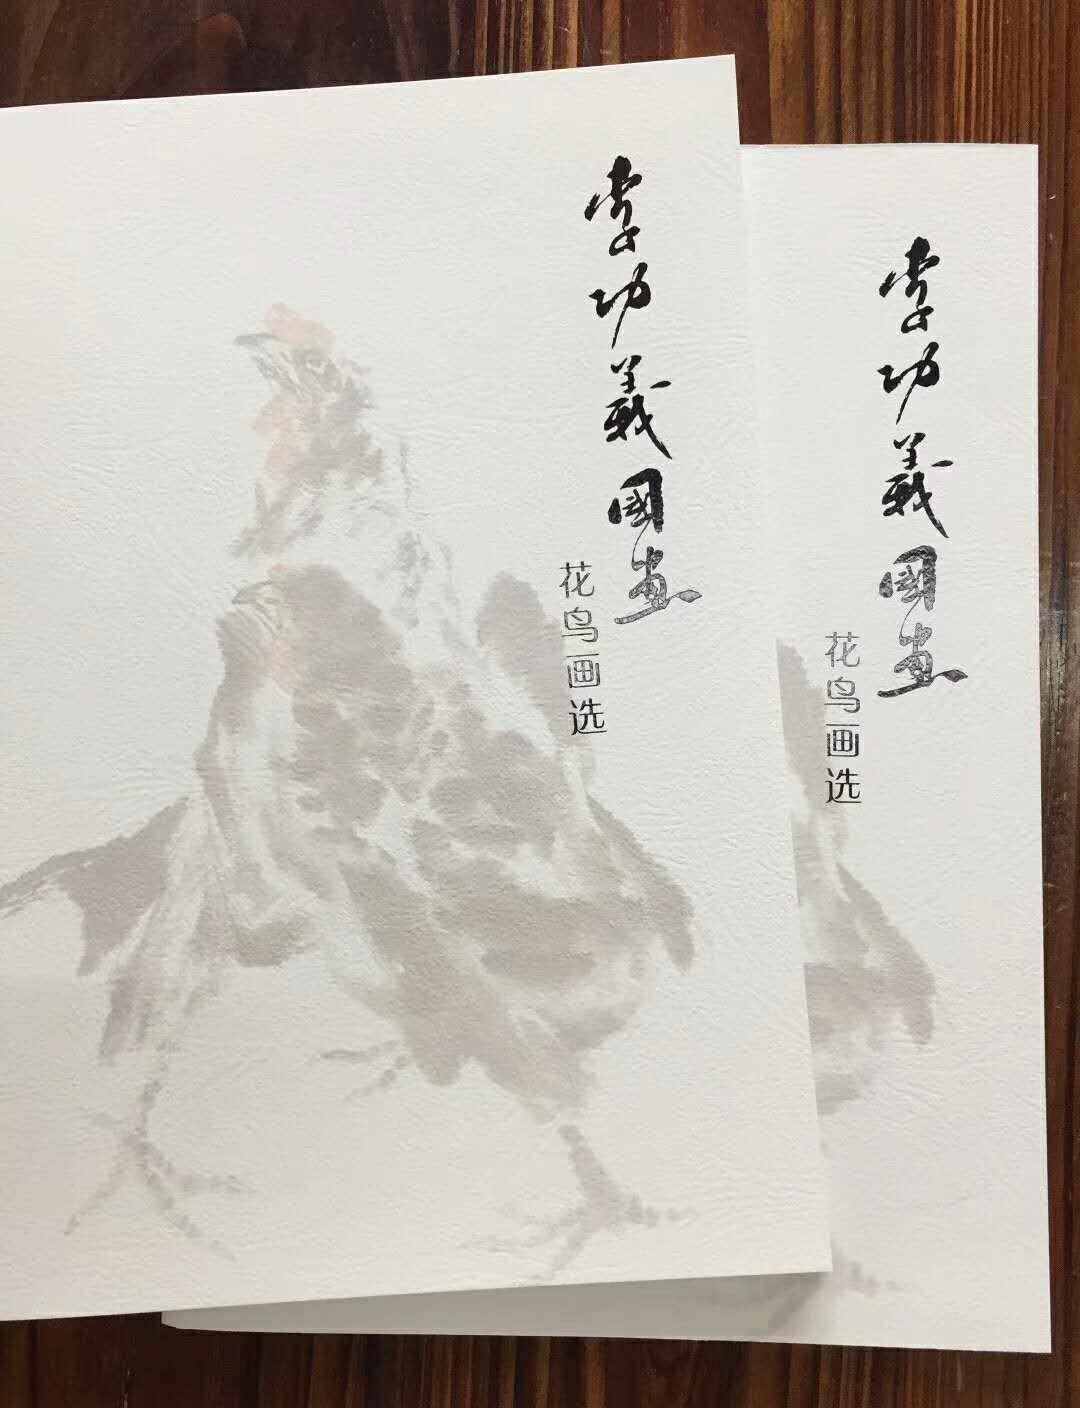 李功義國画
花鸟画选
李功義國画
花鸟画选